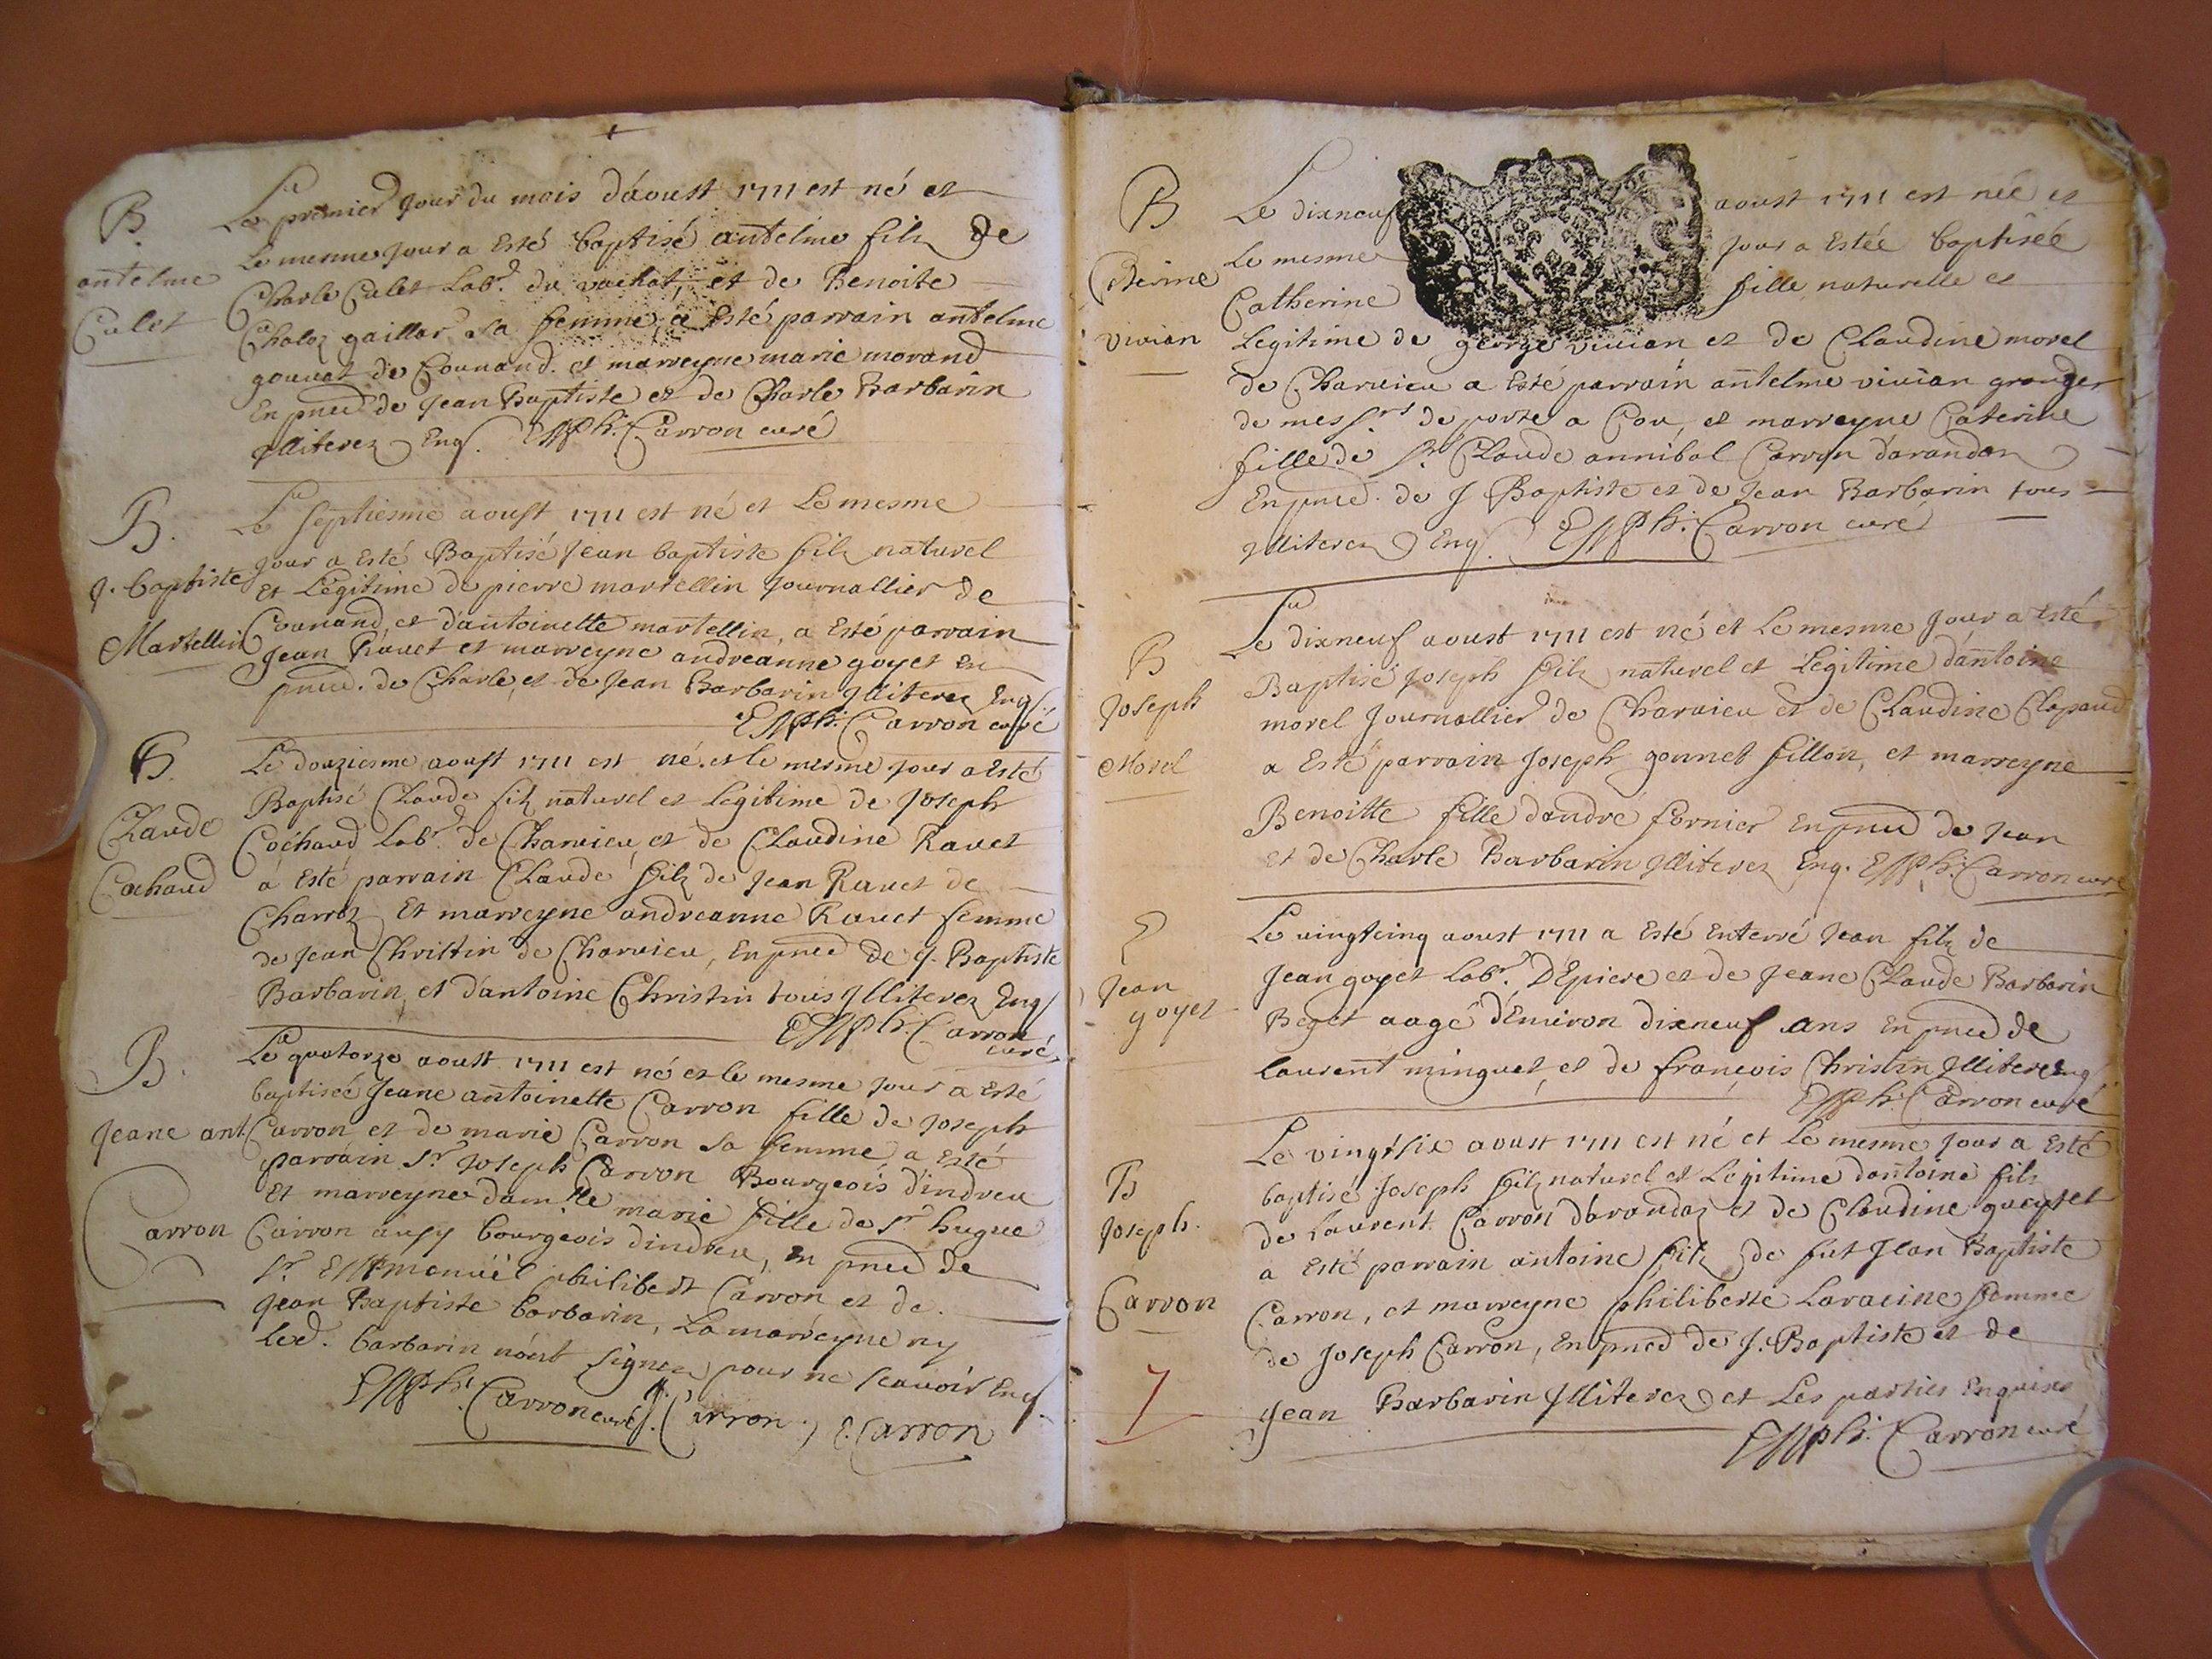 B.
antelme
Culet
Le premier jour du mois d'aoust 1711 est né et
Le mesme jour a esté baptisé antelme filz de
Charle Culet Labr. du vachat, et de Benoite
Chaloz gaillar sa femme a esté parrain antelme
gouvat de Counand. et marreyne marie morand
En pnce de Jean Baptiste et de Charle Barbarin
Illiterez Enq. EMPh. Carron curé
B.
J. baptiste
Martellin
Le septiesme aoust 1711 est né et Le mesme
jour a esté Baptisé Jean baptiste filz naturel
et Legitime de pierre martellin journallier de
Counand et d'antoinette martellin, a Esté parrain
Jean Ravet et marreyne andreanne goyet En
pnce. de Charle, et de Jean Barbarin Illiterez Enq.
EMPh. Carron curé
B.
Claude
Cochaud
Le douziesme aoust 1711 est né. et le mesme jour a Esté
Baptisé Claude filz naturel et Legitime de Joseph
Cochaud Labr. de Charvieu et de Claudine Ravet
a esté parrain Claude filz de Jean Ravet de
Charroz Et marreyne andreanne Ravet femme
de Jean Christin de Charvieu, En pnce de J. Baptiste
Barbarin, et d'antoine Christin tous Illiterez Enq.
EMPh. Carron
curé
B.
Jeane ant.
Carron
Le quatorze aoust 1711 est né et le mesme jour a Esté
baptiseé Jeane antoinette Carron fille de Joseph
Carron et de marie Carron sa femme, a Esté
parrain Sr. Joseph Carron Bourgeois d'indrieu
Et marreyne dam.lle marie fille de Sr hugue
Carron ausy bourgeois d'indrieu, en pnce de
Sr. EMmanuel philibert Carron et de
Jean Baptiste barbarin, La marreyne ny
Led. barbarin n'ont signez pour ne scavoir Enq.
EMPh. Carron curé J. Carron E. Carron
B
Cterine
vivian
Le dixneuf aoust 1711 est née et
Le mesme jour a Estée baptiseé
Catherine fille naturelle et
Legitime de george vivian et de Claudine morel
de Charvieu a Esté parrain antelme vivian granger
de mes srs de porte a Cou, et marreyne Caterine
fille de Sr Claude annibal Carron d'arandon
En pnce. de J Baptiste et de Jean Barbarin tous
Illiterez Enq. EMPh. Carron curé
B
Joseph
Morel
Le dixneuf aoust 1711 est né et Le mesme Jour a Esté
Baptisé Joseph filz naturel et Legitime d'antoine
morel Journallier de Charvieu et de Claudine Clapaud
a Esté parrain Joseph gonnet fillon, et marreyne
Benoitte fille d'andré fornier En pnce de Jean
Et de Charle Barbarin Illiterez Enq. EMPh. Carron curé
E
Jean
goyet
Le vingtcinq aoust 1711 a Esté Enterré Jean filz de
Jean goyet Labr. D'Epiere et de Jeane Claude Barbarin
Beget aagé d'Environ dixneuf ans En pnce de
Laurent minguet, et de françois Christin Illiterez Enq.
EMPh. Carron curé
B
Joseph.
Carron
7
Le vingtsix aoust 1711 est né et Le mesme jour a Esté
baptisé Joseph filz naturel et Legitime d'antoine filz
de Laurent Carron d'arandoz et de Claudine gueytet
a Esté parrain antoine filz de fut Jean Baptiste
Carron, et marreyne philiberte Laracine femme
de Joseph Carron, En pnce de J. Baptiste et de
Jean Barbarin Illiterez et Les parties Enquises
EMPh. Carron curé